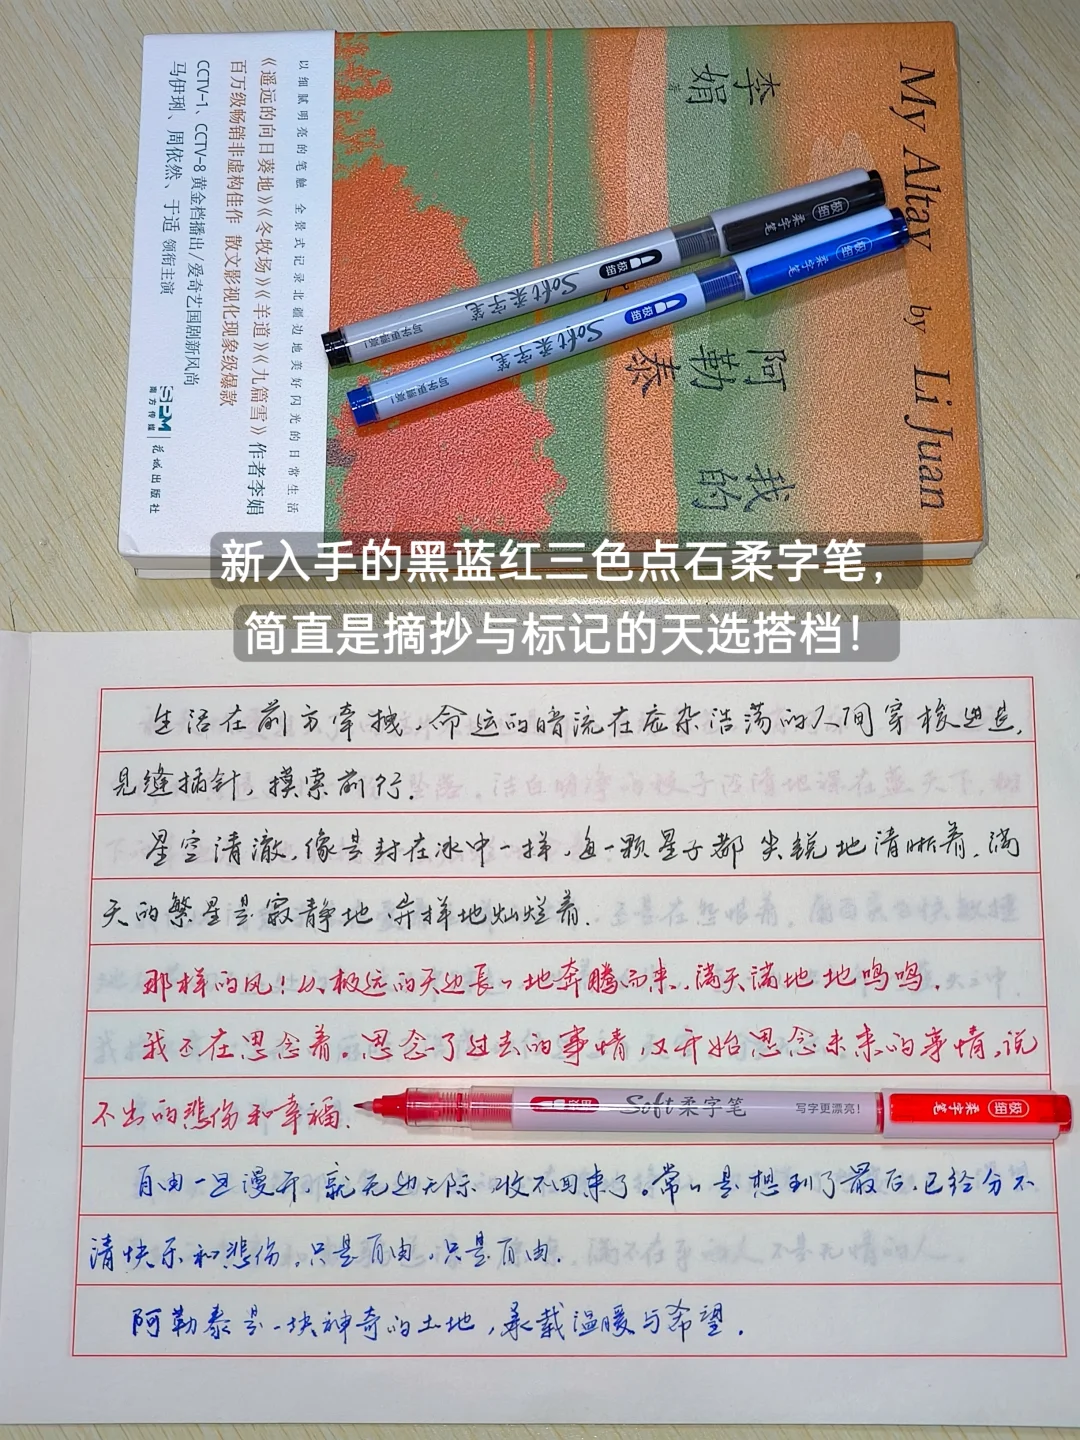 My Altay by Li Juan
李娟 著
我的阿勒泰
以细腻明亮的笔触 全景式记录北疆边地美好闪光的日常生活
《遥远的向日葵地》《冬牧场》《羊道》《九篇雪》作者李娟
百万级畅销非虚构佳作 散文影视化现象级爆款
CCTV-1、CCTV-8黄金档播出/爱奇艺国剧新风尚
马伊琍、周依然、于适 领衔主演
南方传媒 花城出版社
极细 柔字笔
极细 Soft柔字笔 写字更漂亮!
极细 柔字笔
极细 Soft柔字笔 写字更漂亮!
新入手的黑蓝红三色点石柔字笔，
简直是摘抄与标记的天选搭档！
生活在前方牵拽，命运的暗流在庞杂浩荡的人间穿梭进退，
见缝插针，摸索前行．
星空清澈，像是封在冰中一样，每一颗星子都尖锐地清晰着．满
天的繁星是寂静地．异样地灿烂着．
那样的风！从极远的天边长长地奔腾而来，满天满地地鸣鸣．
我还在思念着。思念了过去的事情，又开始思念未来的事情，说
不出的悲伤和幸福．
Soft柔字笔 写字更漂亮! 极细 柔字笔
自由一旦漫开，就无边无际，收不回来了。常常是想到了最后，已经分不
清快乐和悲伤，只是自由，只是自由．
阿勒泰是一块神奇的土地，承载温暖与希望．